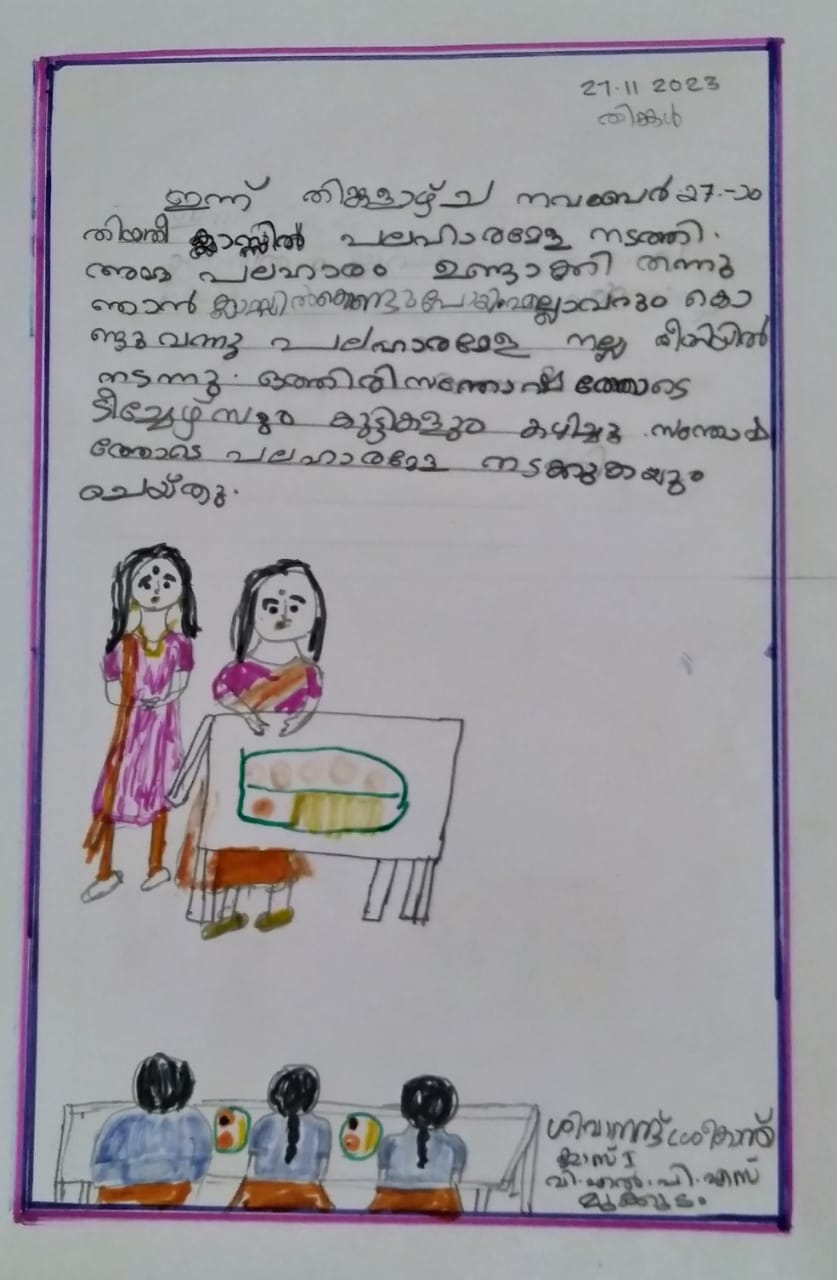 27.11 2023
തിങ്കൾ
ഇന്ന് തിങ്കളാഴ്ച നവംബർ 27-ാം
തിയതി ക്ലാസ്സിൽ പലഹാരമേള നടത്തി.
അമ്മ പലഹാരം ഉണ്ടാക്കി തന്നു
ഞാൻ ക്ലാസ്സിൽകൊണ്ടുപോയിഎല്ലാവരും കൊ
ണ്ടുവന്നു പലഹാരമേള നല്ല രീതിയിൽ
നടന്നു. ഒത്തിരിസന്തോഷത്തോടെ
ടീച്ചേഴ്സും കുട്ടികളും കഴിച്ചു. സന്തോഷ
ത്തോടെ പലഹാരമേള നടക്കുകയും
ചെയ്തു.
ക്ലാസ് I
വി.എൽ.പി.എസ്